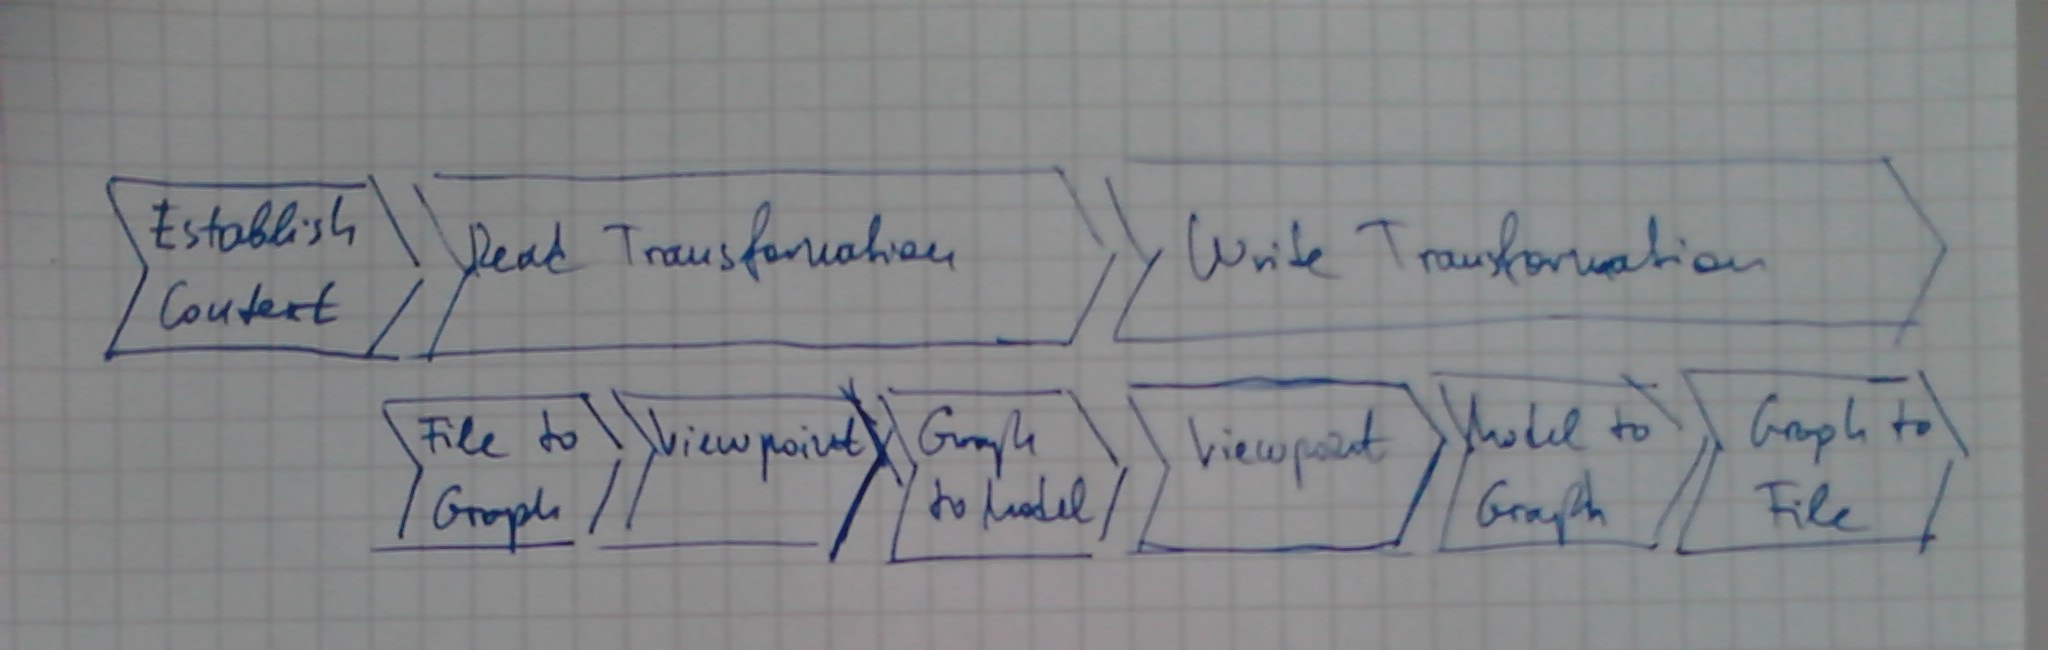 Establish
Context
Read Transformation
Write Transformation
File to
Graph
Viewpoint
Graph
to Model
Viewpoint
Model to
Graph
Graph to
File